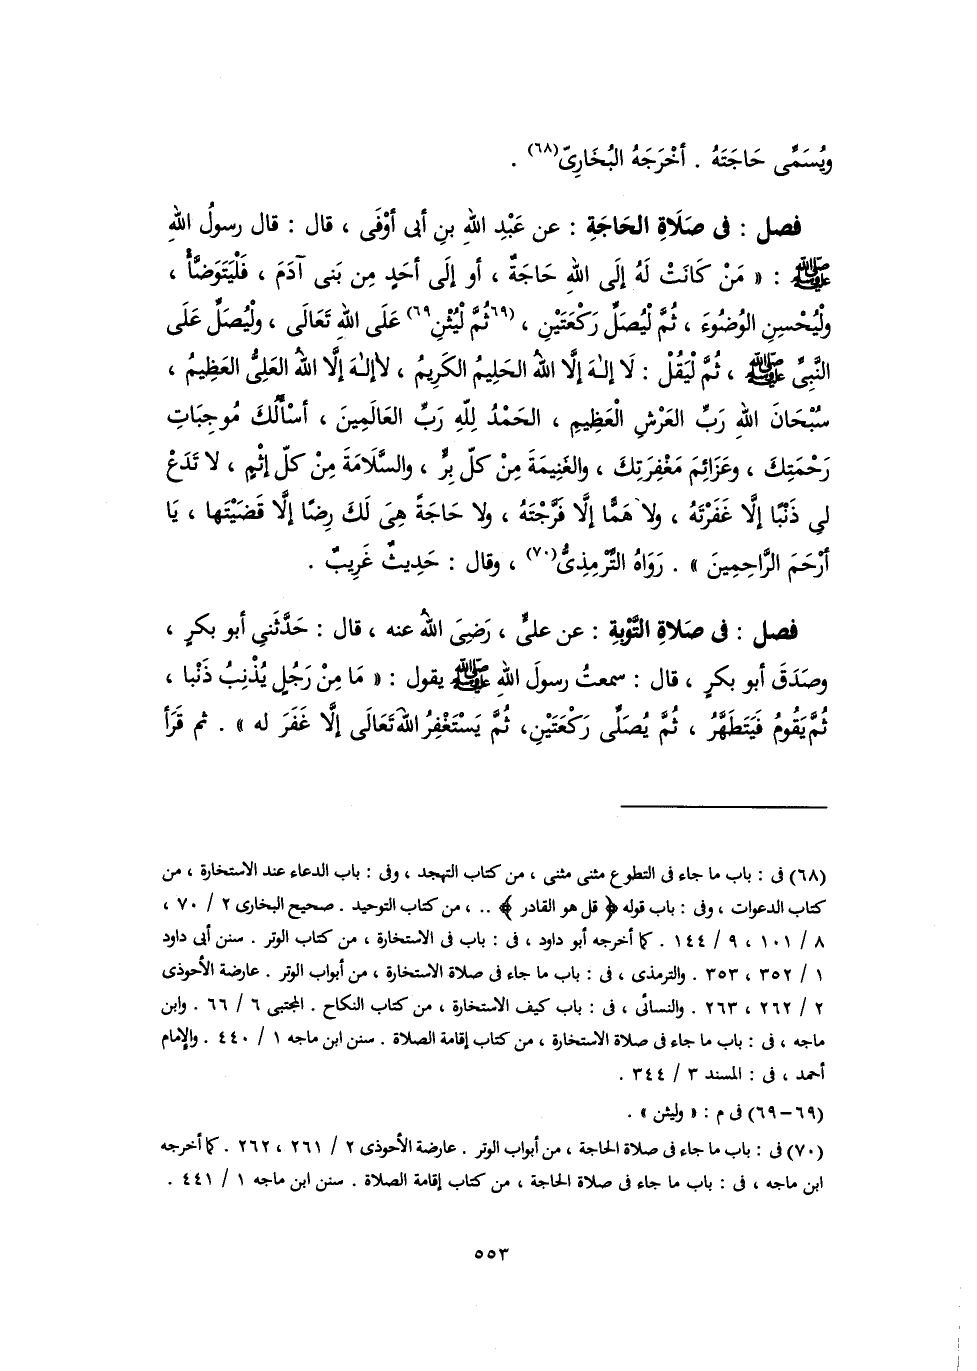 ويُسَمِّى حَاجَتَهُ . أخْرَجَهُ البُخَارِىّ(٦٨) .
فصل : فى صَلَاةِ الحَاجَةِ : عن عَبْدِ اللهِ بنِ أبى أوْفَى ، قال : قال رسولُ اللهِ
ﷺ : « مَنْ كَانَتْ لَهُ إلَى اللهِ حَاجَةٌ ، أو إلَى أحَدٍ مِن بَنى آدَمَ ، فَلْيَتَوَضَّأْ ،
ولْيُحْسِنِ الوُضُوءَ ، ثُمَّ لْيُصَلِّ رَكْعَتَيْنِ ، (٦٩ثُمَّ لْيُثْنِ٦٩) عَلَى اللهِ تَعَالَى ، ولْيُصَلِّ عَلَى
النَّبِىِّ ﷺ ، ثُمَّ لْيَقُلْ : لَا إلٰهَ إلَّا اللهُ الحَلِيمُ الكَرِيمُ ، لاإلٰهَ إلَّا اللهُ العَلِىُّ العَظِيمُ ،
سُبْحَانَ اللهِ رَبِّ العَرْشِ الْعَظِيمِ ، الحَمْدُ لِلّهِ رَبِّ العَالَمِينَ ، أسْألُكَ مُوجِبَاتِ
رَحْمَتِكَ ، وعَزَائِمَ مَغْفِرَتِكَ ، والغَنِيمَةَ مِنْ كلّ بِرٍّ ، والسَّلَامَةَ مِنْ كلّ إثْمٍ ، لا تَدَعْ
لى ذَنْبًا إلَّا غَفَرْتَهُ ، ولا هَمًّا إلَّا فَرَّجْتَهُ ، ولا حَاجَةً هِىَ لَكَ رِضًا إلَّا قَضَيْتَها ، يَا
أرْحَمَ الرَّاحِمِينَ » . رَوَاهُ التِّرْمِذِىُّ(٧٠) ، وقال : حَدِيثٌ غَرِيبٌ .
فصل : فى صَلَاةِ التَّوْبةِ : عن علىٍّ ، رَضِىَ اللهُ عنه ، قال : حَدَّثَنى أبو بكرٍ ،
وصَدَقَ أبو بكرٍ ، قال : سمعتُ رسولَ اللهِ ﷺ يقول : « مَا مِنْ رَجُلٍ يُذْنِبُ ذَنْبا ،
ثُمَّ يَقُومُ فَيَتَطَهَّرُ ، ثُمَّ يُصَلِّى رَكْعَتَيْنِ، ثُمَّ يَسْتَغْفِرُ اللهَ تَعَالَى إلَّا غَفَرَ له » . ثم قَرَأ
(٦٨) فى : باب ما جاء فى التطوع مثنى مثنى ، من كتاب التهجد ، وفى : باب الدعاء عند الاستخارة ، من
كتاب الدعوات ، وفى : باب قوله ﴿ قل هو القادر ﴾ .. ، من كتاب التوحيد . صحيح البخارى ٢ / ٧٠ ،
٨ / ١٠١ ، ٩ / ١٤٤ . كما أخرجه أبو داود ، فى : باب فى الاستخارة ، من كتاب الوتر . سنن أبى داود
١ / ٣٥٢ ، ٣٥٣ . والترمذى ، فى : باب ما جاء فى صلاة الاستخارة ، من أبواب الوتر . عارضة الأحوذى
٢ / ٢٦٢ ، ٢٦٣ . والنسائى ، فى : باب كيف الاستخارة ، من كتاب النكاح . المجتبى ٦ / ٦٦ . وابن
ماجه ، فى : باب ما جاء فى صلاة الاستخارة ، من كتاب إقامة الصلاة . سنن ابن ماجه ١ / ٤٤٠ . والإمام
أحمد ، فى : المسند ٣ / ٣٤٤ .
(٦٩-٦٩) فى م : « وليثن » .
(٧٠) فى : باب ما جاء فى صلاة الحاجة ، من أبواب الوتر . عارضة الأحوذى ٢ / ٢٦١ ، ٢٦٢ . كما أخرجه
ابن ماجه ، فى : باب ما جاء فى صلاة الحاجة ، من كتاب إقامة الصلاة . سنن ابن ماجه ١ / ٤٤١ .
٥٥٣